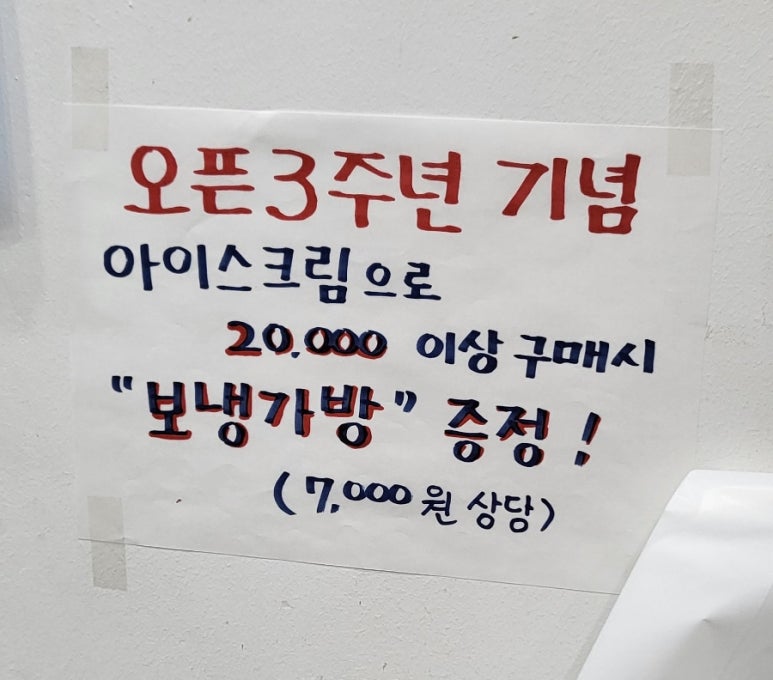 오픈 3주년 기념
아이스크림으로
20.000 이상 구매시
"보냉가방" 증정!
(7,000원 상당)